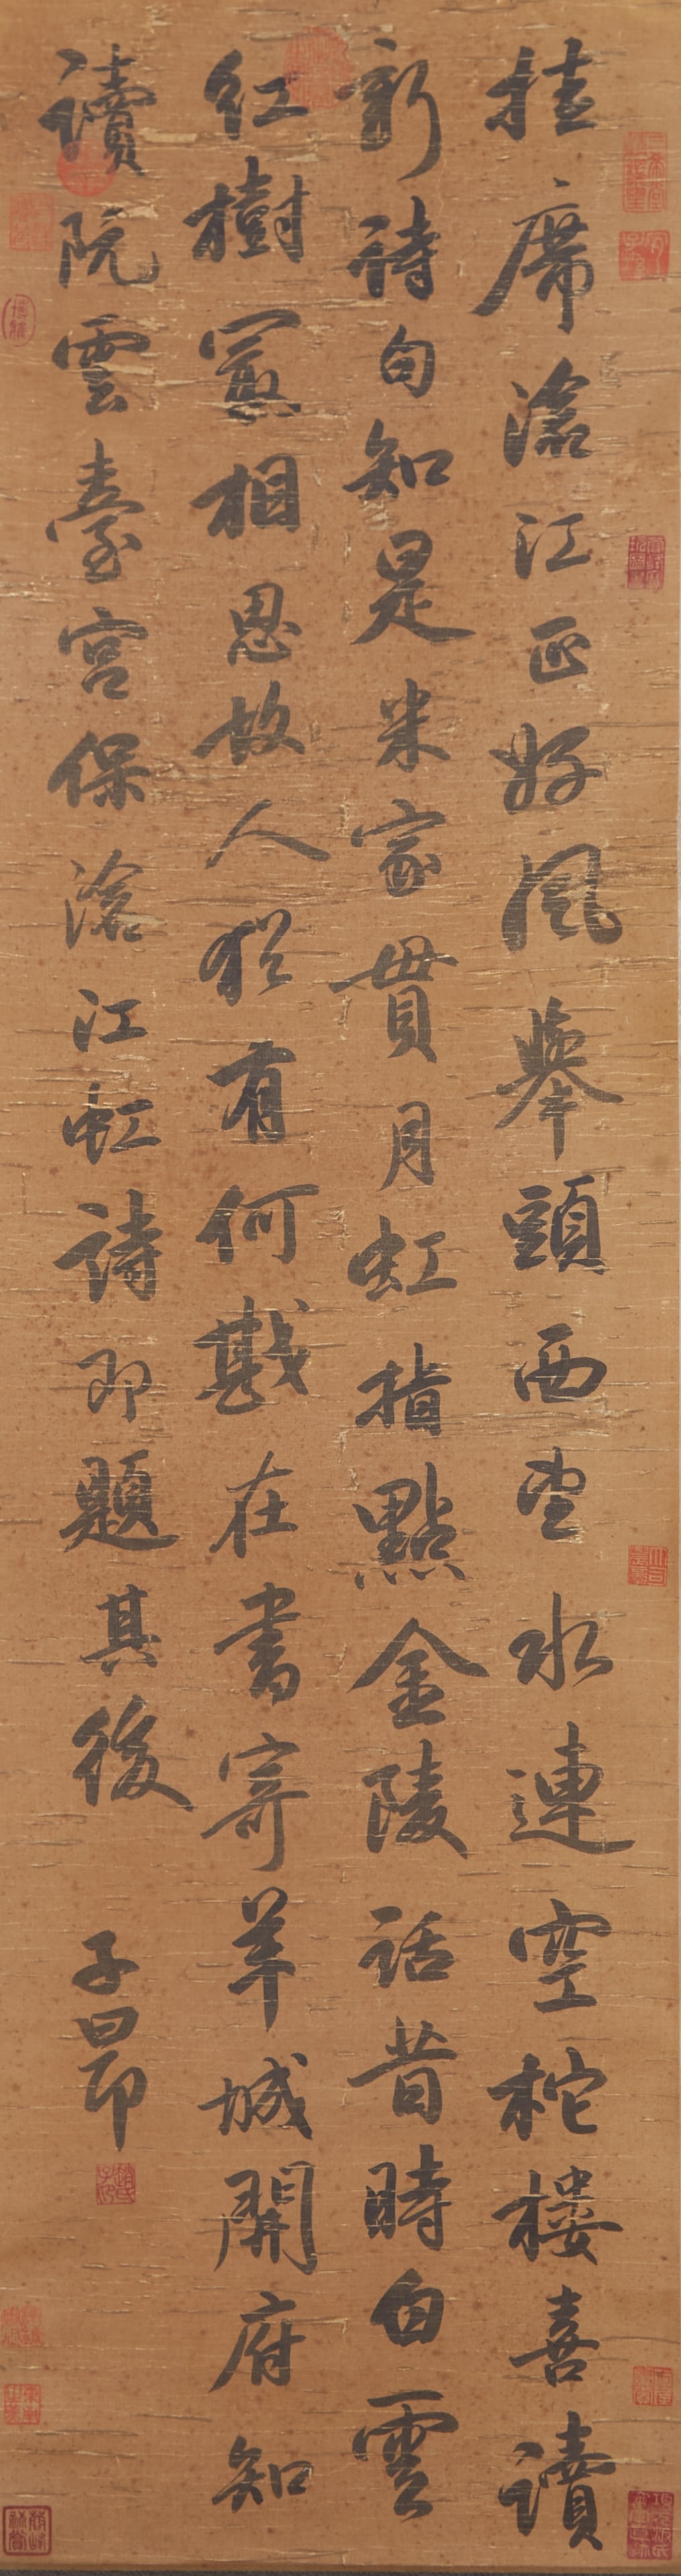 挂席滄江正好風舉頭西望水連空柁樓喜讀
新詩句知是米家貫月虹指點金陵話昔時白雲
紅樹最相思故人猶有何戡在書寄羊城開府知
讀阮雲臺宮保滄江虹詩即題其後 子昂
趙氏子昂